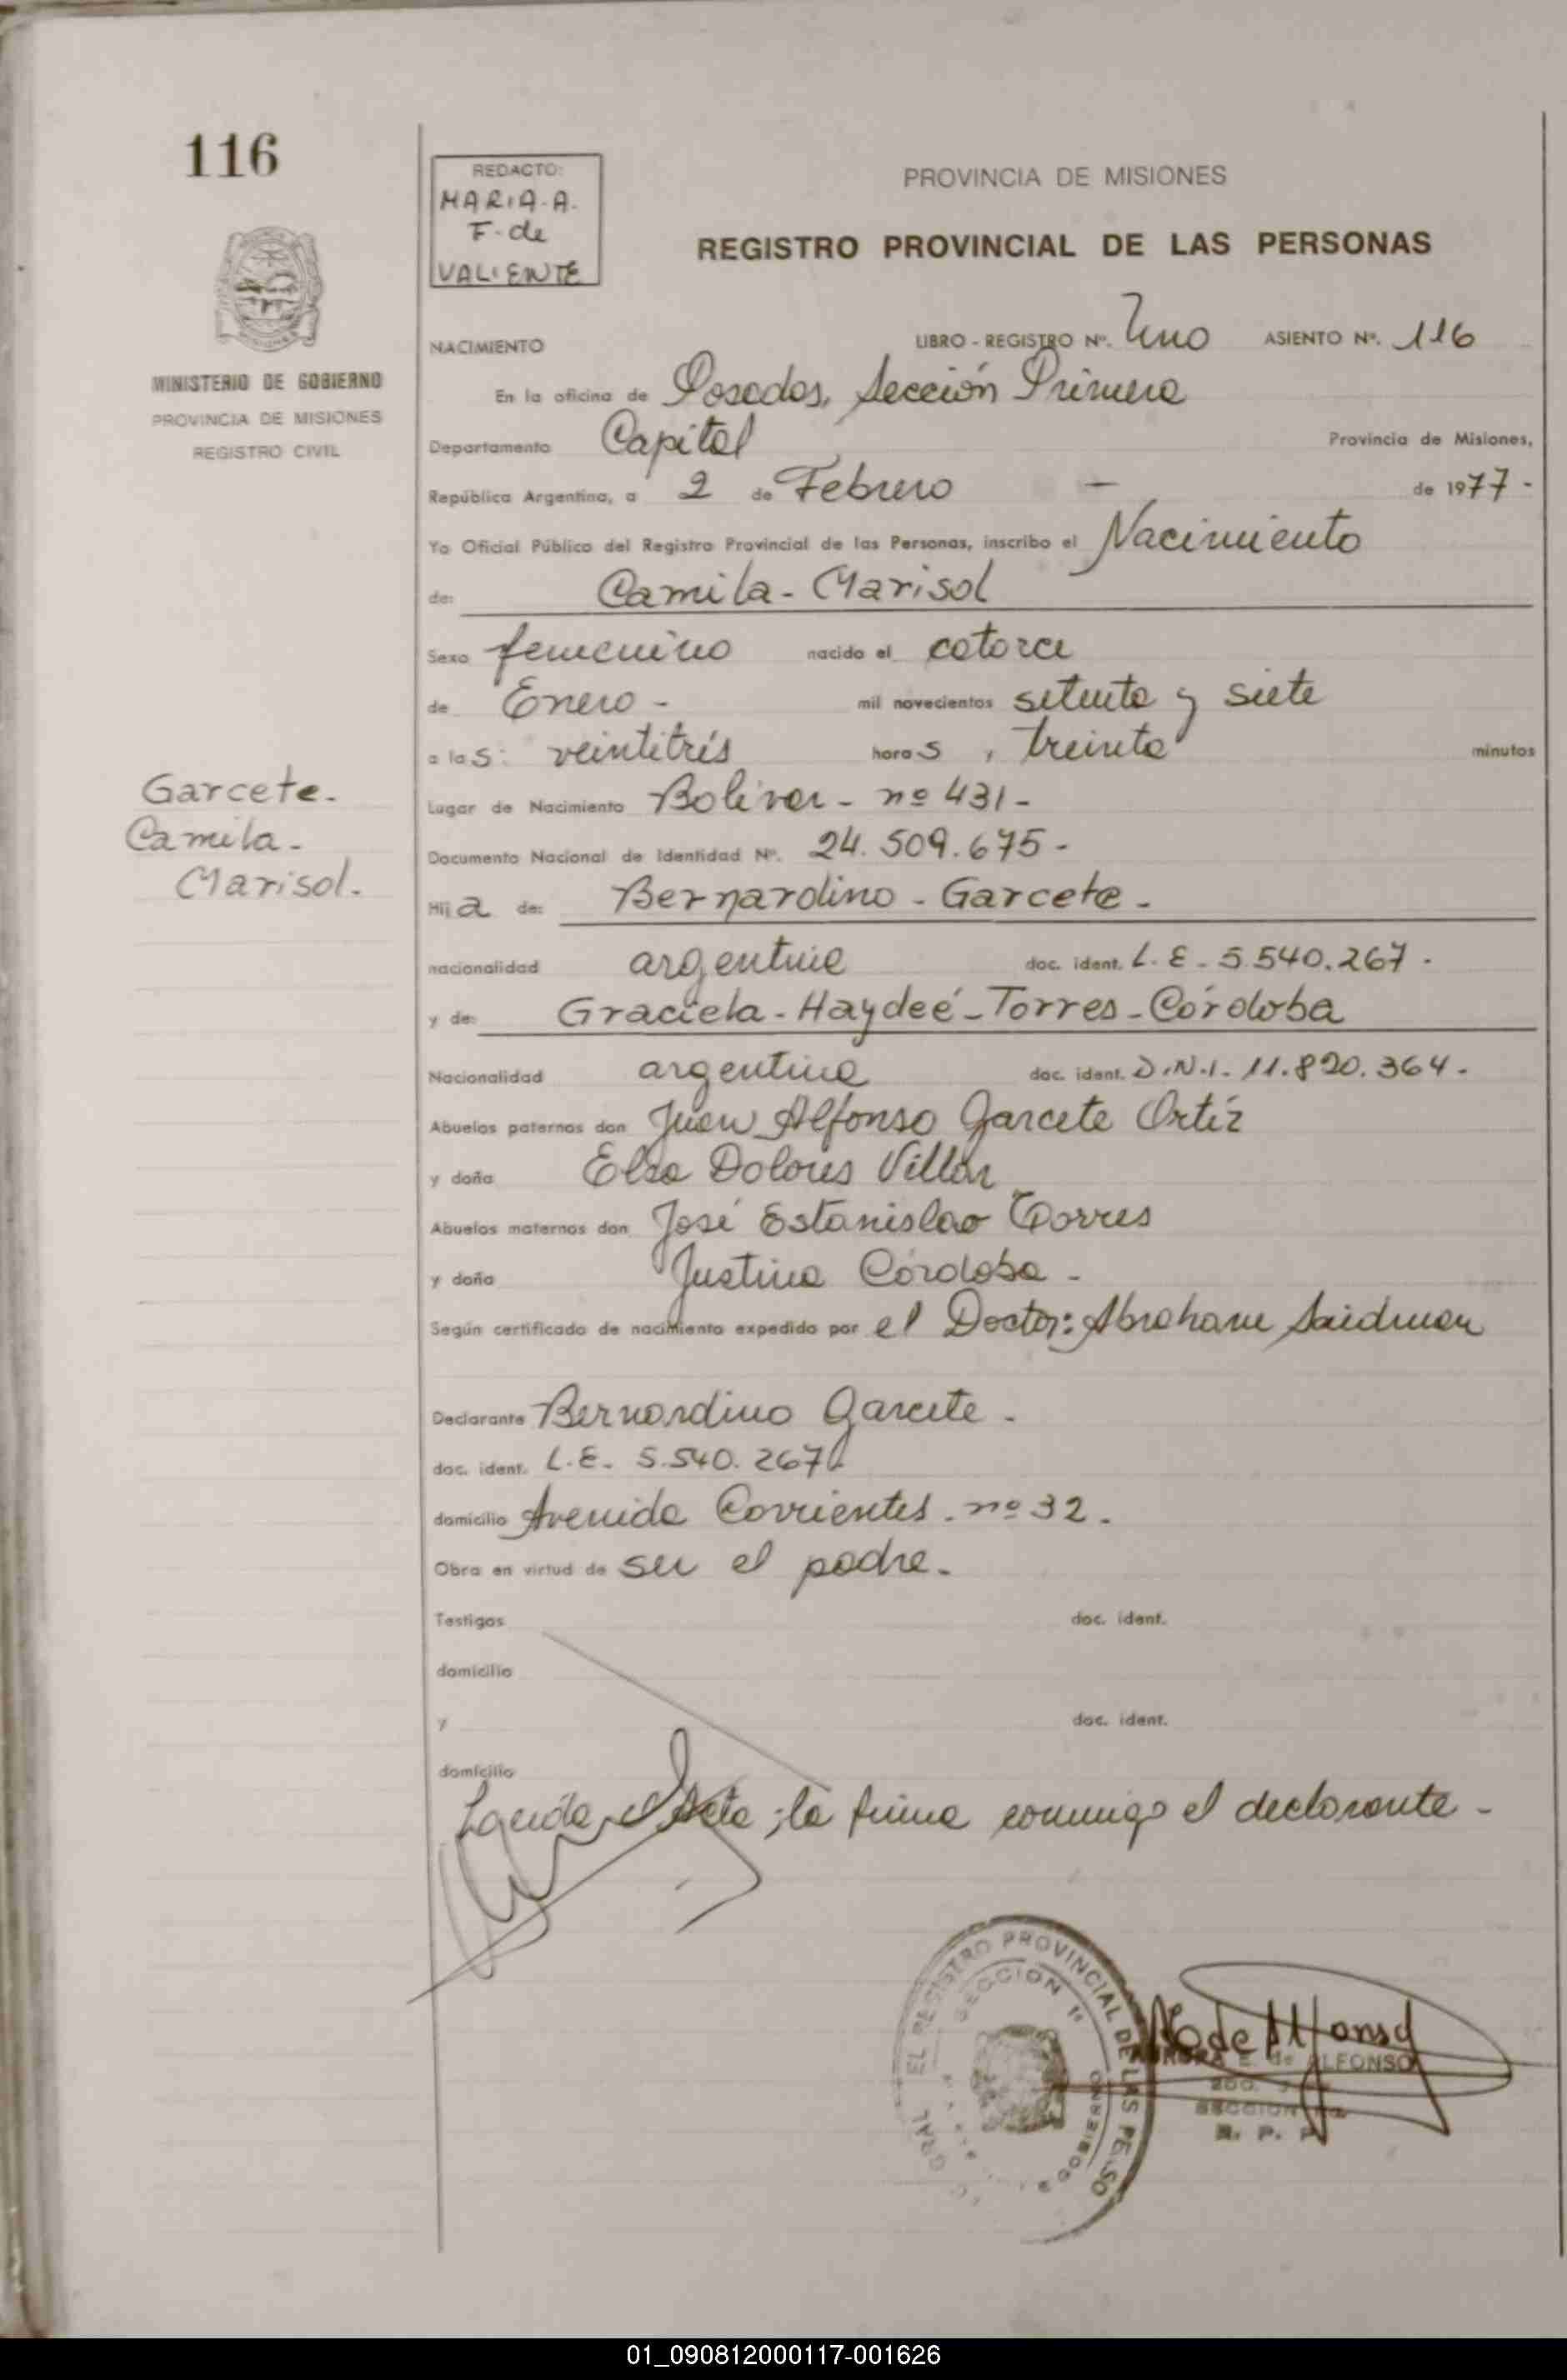 116
REDACTO:
MARIA.A.
F. de
VALIENTE
PROVINCIA DE MISIONES
REGISTRO PROVINCIAL DE LAS PERSONAS
MINISTERIO DE GOBIERNO
PROVINCIA DE MISIONES
REGISTRO CIVIL
NACIMIENTO LIBRO - REGISTRO Nº. Uno ASIENTO Nº. 116
En la oficina de Posadas, Sección Primera
Departamento Capital Provincia de Misiones,
República Argentina, a 2 de Febrero — de 1977-
Yo Oficial Público del Registro Provincial de las Personas, inscribo el Nacimiento
de: Camila - Marisol
Sexo femenino nacido el catorce
de Enero - mil novecientos setenta y siete
a las: veintitrés horas, treinta minutos
Garcete.
Camila -
Marisol.
Lugar de Nacimiento Bolívar - nº 431 -
Documento Nacional de Identidad Nº. 24.509.675 -
Hija de: Bernardino - Garcete -
nacionalidad argentina doc. ident. L.E. 5.540.267.
y de: Graciela - Haydeé - Torres - Córdoba
Nacionalidad argentina doc. ident. D.N.I. 11.820.364.
Abuelos paternos don Juan Alfonso Garcete Ortíz
y doña Elsa Dolores Villar
Abuelos maternos don José Estanislao Torres
y doña Justina Córdoba -
Según certificado de nacimiento expedido por el Doctor: Abraham Saidman
Declarante Bernardino Garcete -
doc. ident. L.E. 5.540.267
domicilio Avenida Corrientes. nº 32.
Obra en virtud de ser el padre.
Testigos doc. ident.
domicilio
y doc. ident.
domicilio
Leída el Acta; la firma conmigo el declarante -
EL REGISTRO PROVINCIAL DE LAS PERSO
SECCION 1ª
GOBIERNO
GRAL
de Alfonso
AURORA E. de ALFONSO
SECCION
R. P. P.
01_090812000117-001626